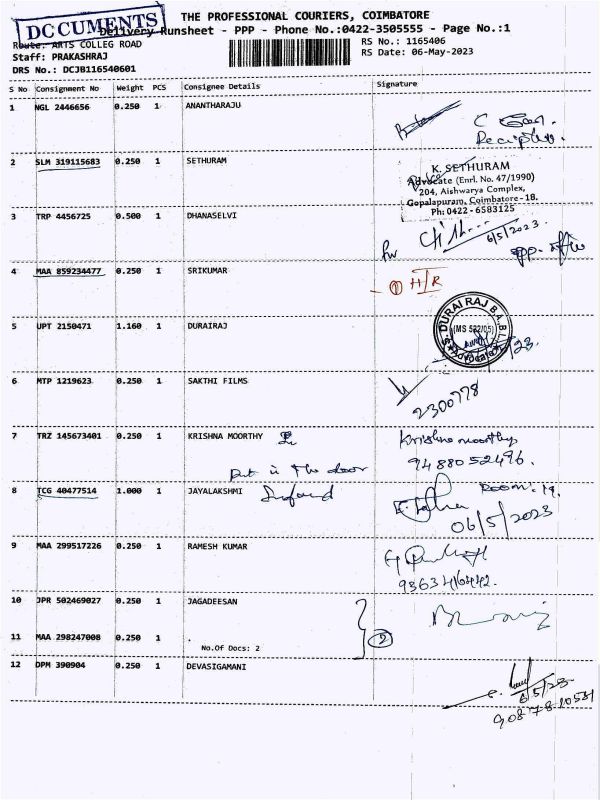 DCCUMENTS
THE PROFESSIONAL COURIERS, COIMBATORE
Delivery Runsheet - PPP - Phone No.:0422-3505555 - Page No.:1
Route: ARTS COLLEG ROAD
RS No.: 1165406
Staff: PRAKASHRAJ
RS Date: 06-May-2023
DRS No.: DCJB116540601
S No Consignment No Weight PCS Consignee Details Signature
1 NGL 2446656 0.250 1 ANANTHARAJU
2 SLM 319115683 0.250 1 SETHURAM
K. SETHURAM
Advocate (Enrl. No. 47/1990)
204, Aishwarya Complex,
Gopalapuram, Coimbatore - 18.
Ph: 0422 - 6583125
3 TRP 4456725 0.500 1 DHANASELVI
6/5/2023
4 MAA 859234477 0.250 1 SRIKUMAR
① H/R
5 UPT 2150471 1.160 1 DURAIRAJ
S. DURAI RAJ B.A., B.L.
(MS 522/05)
Advocate
6 MTP 1219623 0.250 1 SAKTHI FILMS
2300778
7 TRZ 145673401 0.250 1 KRISHNA MOORTHY
Krishna moorthy
9488052496.
Put in the door
8 TCG 40477514 1.000 1 JAYALAKSHMI
Room: 19.
06/5/2023
9 MAA 299517226 0.250 1 RAMESH KUMAR
9363416442.
10 JPR 502469027 0.250 1 JAGADEESAN
11 MAA 298247008 0.250 1 .
No.Of Docs: 2
②
12 DPM 390904 0.250 1 DEVASIGAMANI
6/5/23